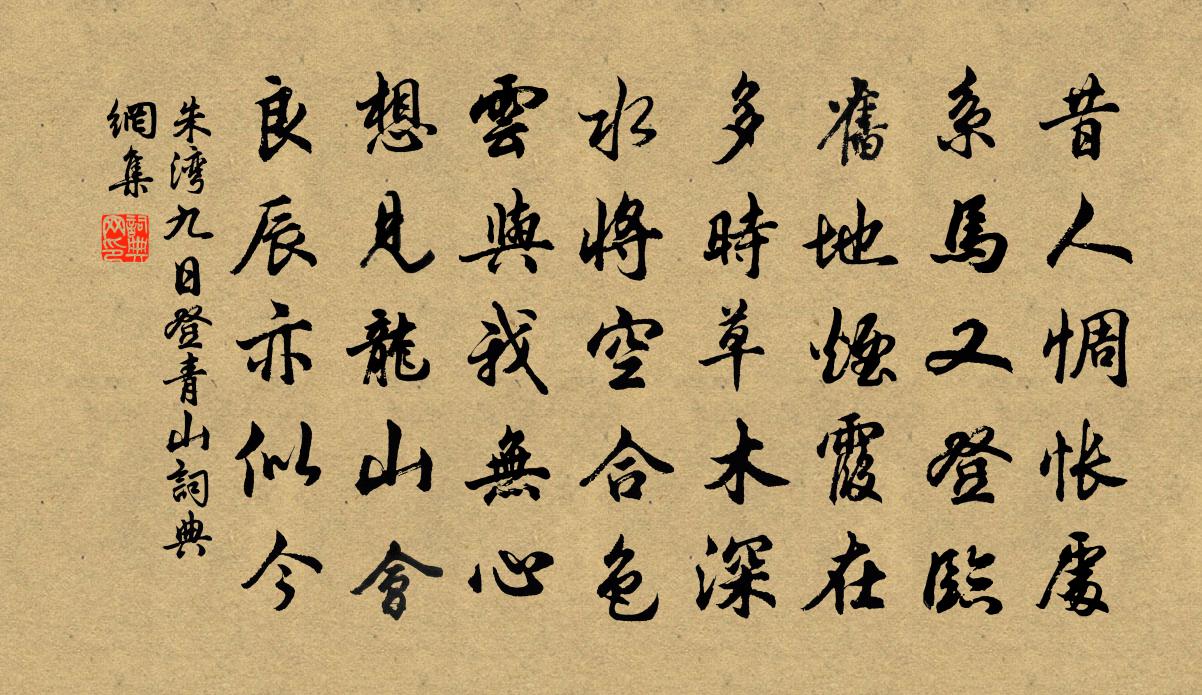 昔人惆怅處
系馬又登臨
舊地煙霞在
多時草木深
水將空合色
雲與我無心
想見龍山會
良辰亦似今
朱湾九日登青山詞典
網集
詞典
网印